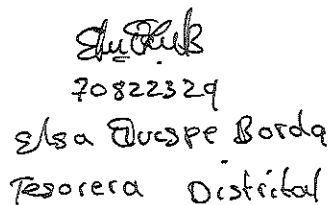 70822329
Elsa Quespe Borda
Tesorera Distrital